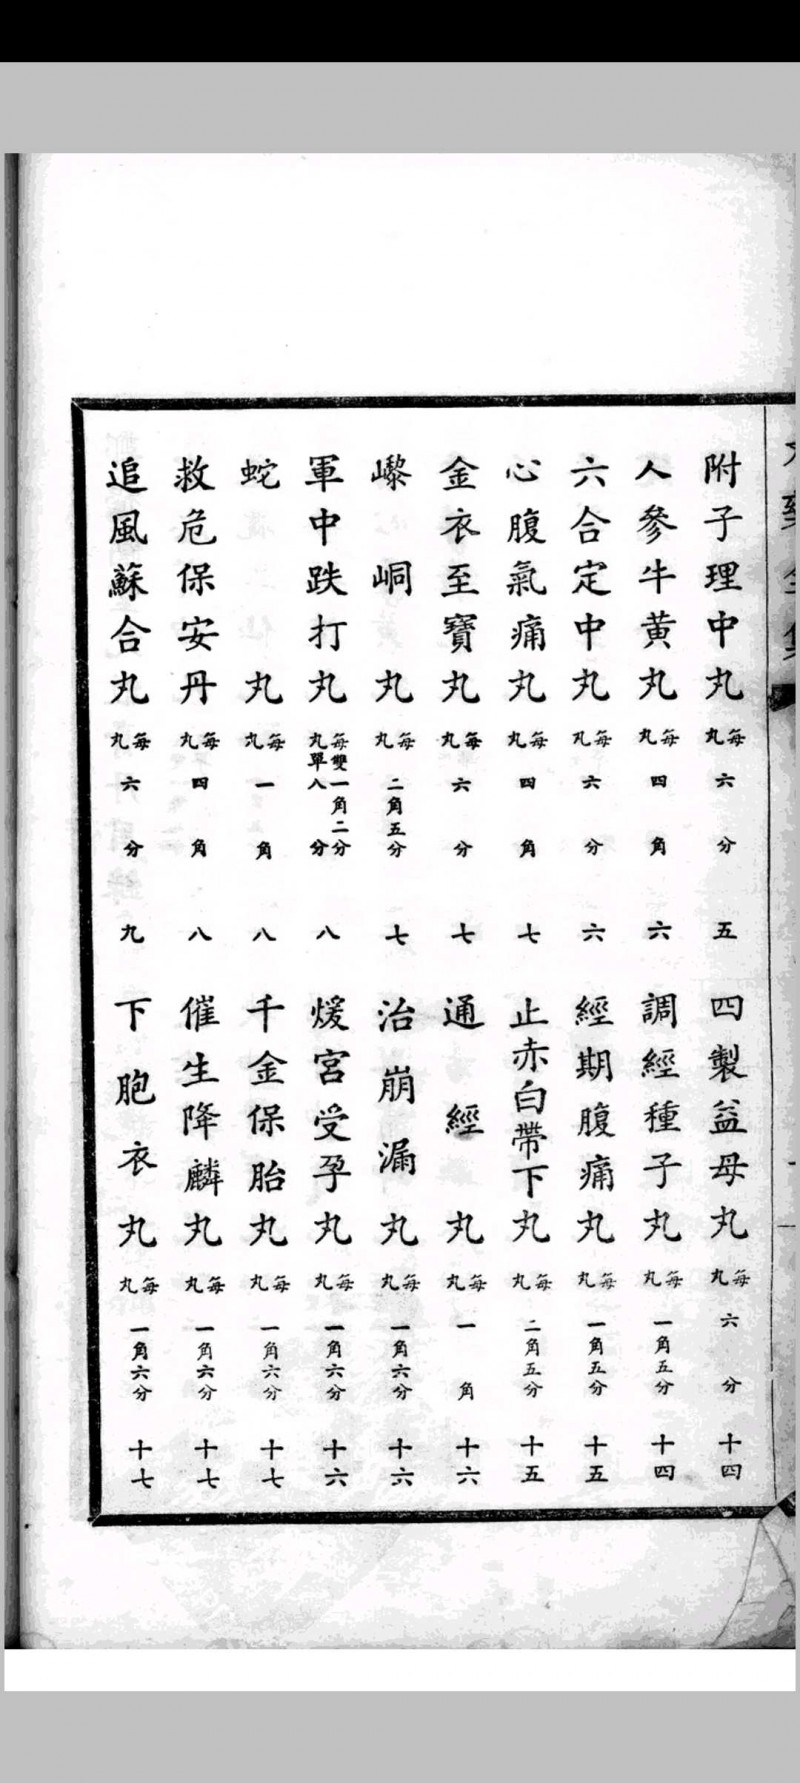 附子理中丸 每丸六分 五
人參牛黃丸 每丸四角 六
六合定中丸 每丸六分 六
心腹氣痛丸 每丸四角 七
金衣至寶丸 每丸六分 七
嚟峒丸 每丸二角五分 七
軍中跌打丸 每雙一角二分 丸單八分 八
蛇丸 每丸一角 八
救危保安丹 每丸四角 八
追風蘇合丸 每丸六分 九
四製益母丸 每丸六分 十四
調經種子丸 每丸一角五分 十四
經期腹痛丸 每丸一角五分 十五
止赤白帶下丸 每丸二角五分 十五
通經丸 每丸一角 十六
治崩漏丸 每丸一角六分 十六
煖宮受孕丸 每丸一角六分 十六
千金保胎丸 每丸一角六分 十七
催生降麟丸 每丸一角六分 十七
下胞衣丸 每丸一角六分 十七